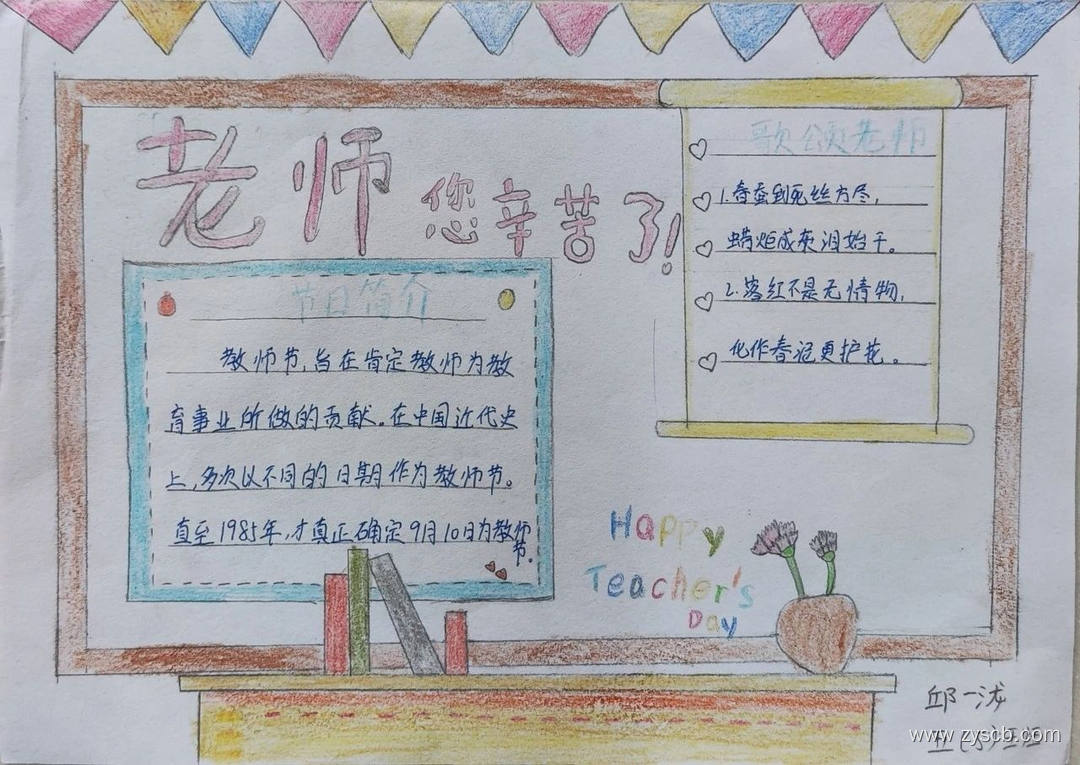 老师您辛苦了!
节日简介
教师节,旨在肯定教师为教
育事业所做的贡献。在中国近代史
上,多次以不同的日期作为教师节。
直至1985年,才真正确定9月10日为教师
节。
歌颂老师
1.春蚕到死丝方尽,
蜡炬成灰泪始干。
2.落红不是无情物,
化作春泥更护花。
Happy
Teacher's
Day
邱一泷
www.zyscb.com